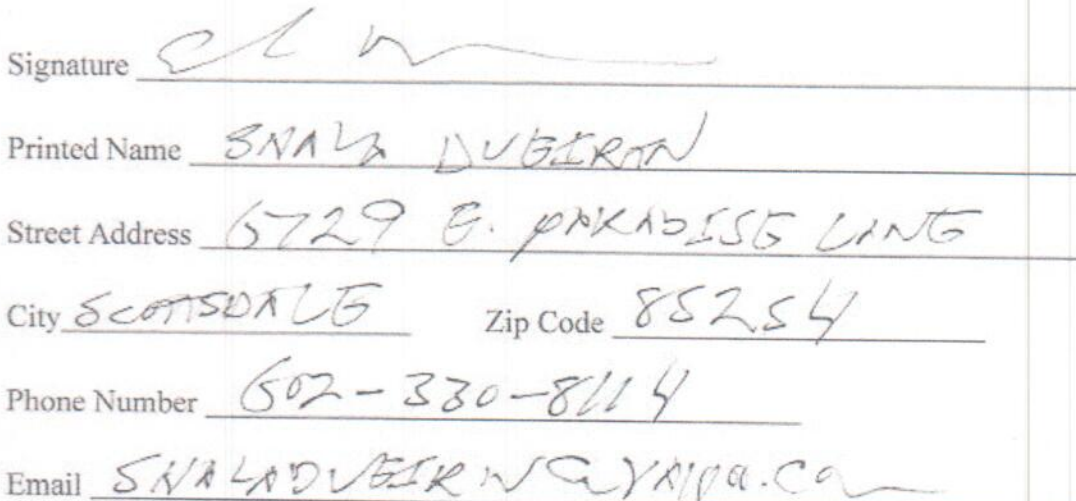 Signature
Printed Name SNALA DUEIRAN
Street Address 6729 E. PARADISE LANE
City SCOTTSDALE Zip Code 85254
Phone Number 602-330-8114
Email